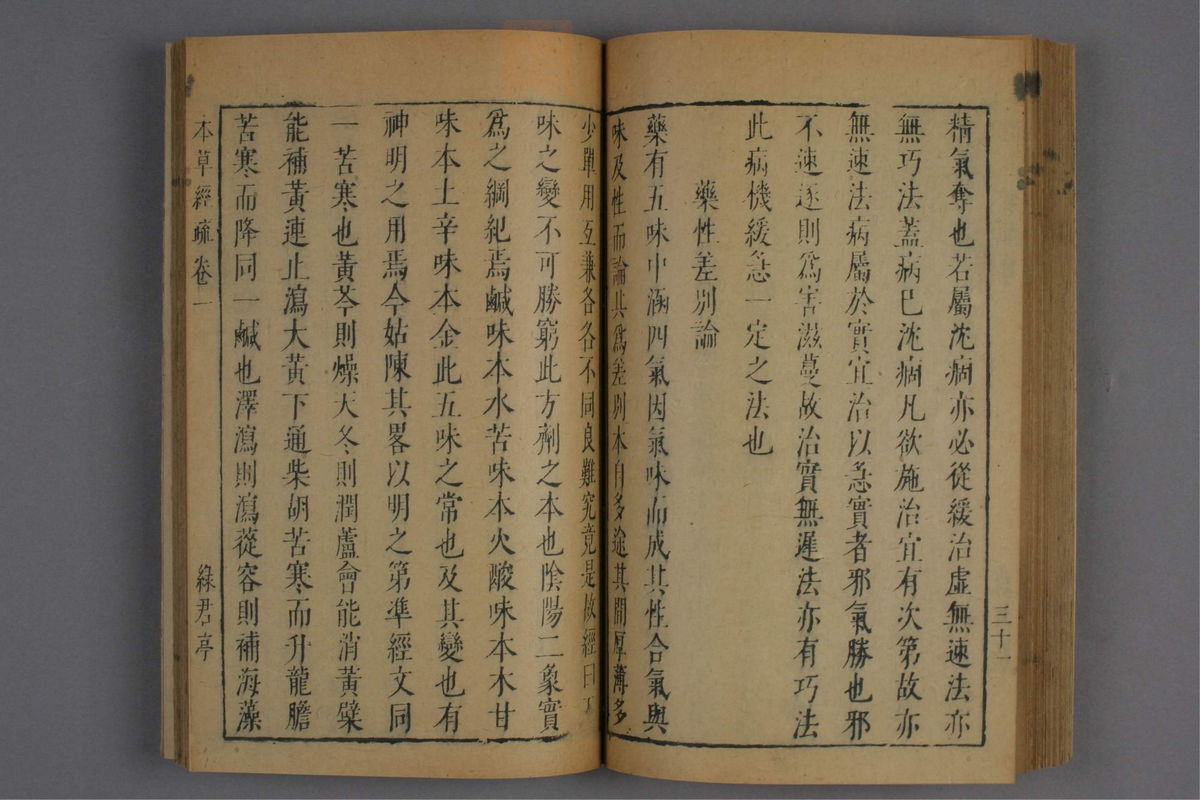 三十一
精氣奪也若屬沈痼亦必從緩治虛無速法亦
無巧法蓋病已沈痼凡欲施治宜有次第故亦
無速法病屬於實宜治以急實者邪氣勝也邪
不速逐則為害滋蔓故治實無遲法亦有巧法
此病機緩急一定之法也
藥性差別論
藥有五味中涵四氣因氣味而成其性合氣與
味及性而論其為差別本自多途其間厚薄多
少單用互兼各各不同良難究竟是故經曰五
味之變不可勝窮此方劑之本也陰陽二象實
為之綱紀焉鹹味本水苦味本火酸味本木甘
味本土辛味本金此五味之常也及其變也有
神明之用焉今姑陳其畧以明之第準經文同
一苦寒也黃芩則燥天冬則潤蘆會能消黃檗
能補黃連止瀉大黃下通柴胡苦寒而升龍膽
苦寒而降同一鹹也澤瀉則瀉蓯容則補海藻
本草經疏卷一
綠君亭